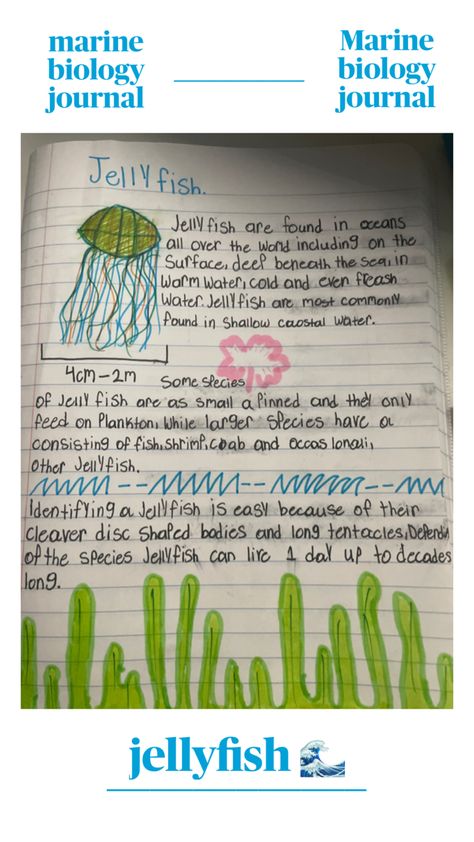 marine
biology
journal
Marine
biology
journal
Jellyfish.
Jellyfish are found in oceans
all over the world including on the
Surface, deep beneath the sea, in
warm water, cold and even freash
water. Jellyfish are most commonly
found in Shallow caostal water.
4cm-2m
Some species
of Jelly fish are as small a Pinned and they only
feed on Plankton, while larger species have a
consisting of fish, shrimp, crab and occas ionali,
other Jellyfish.
Identifying a Jellyfish is easy because of their
cleaver disc shaped bodies and long tentacles, Dependin
of the species Jellyfish can live 1 day up to decades
long.
jellyfish 🌊